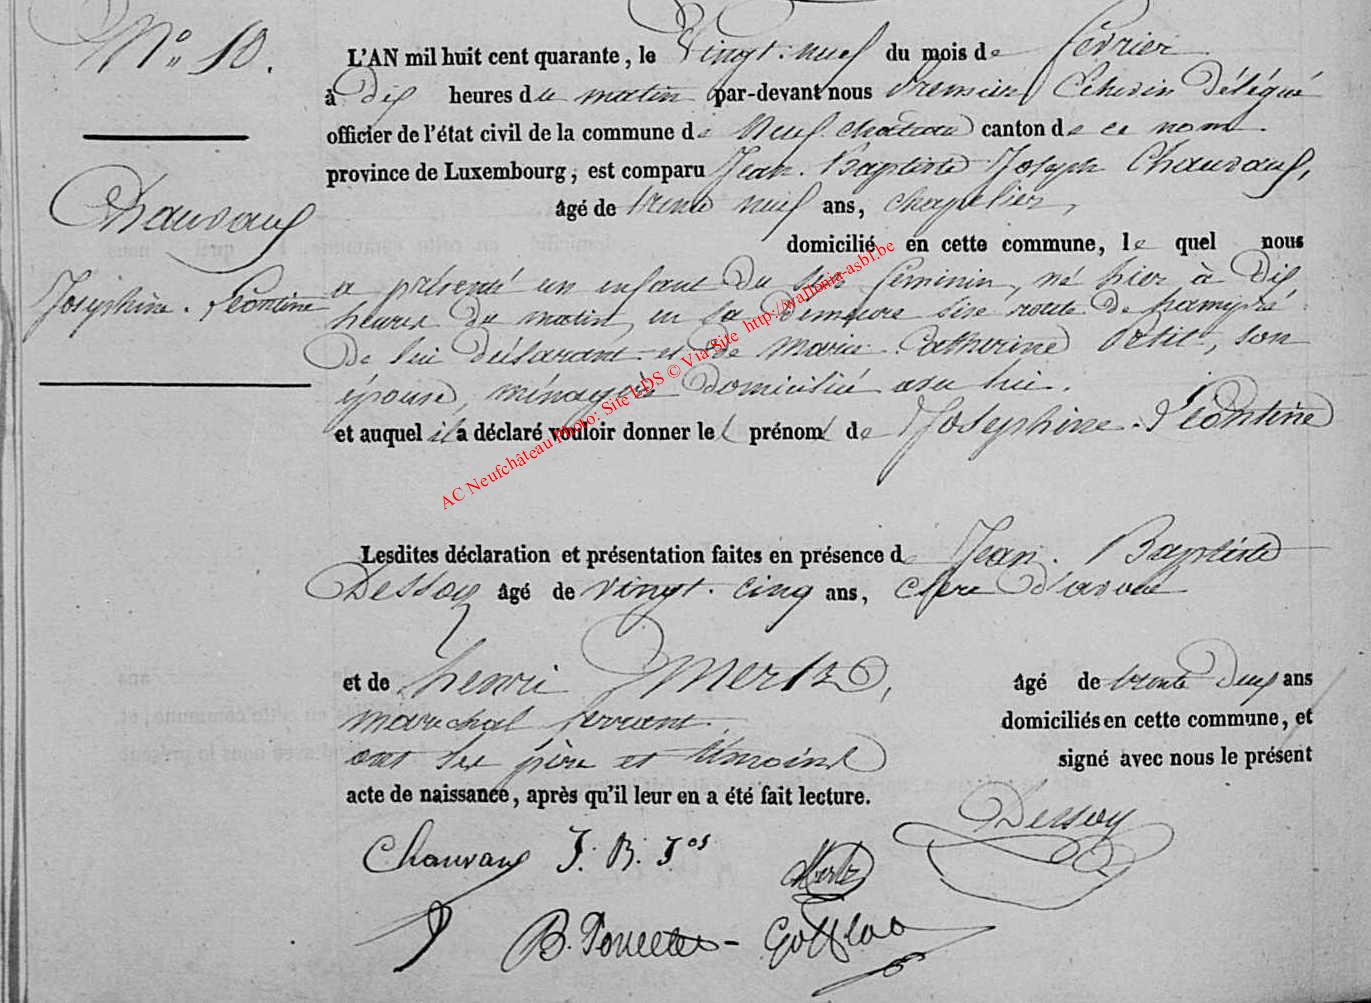 N° 10.
L'AN mil huit cent quarante, le Vingt-neuf du mois de février
à dix heures du matin par-devant nous Premier Echevin Délégué
officier de l'état civil de la commune de Neufchateau canton de ce nom.
province de Luxembourg, est comparu Jean-Baptiste Joseph Chauvaux,
âgé de trente neuf ans, chapelier,
domicilié en cette commune, lequel nous
Chauvaux
Josephine-Léontine
a présenté un enfant du sexe féminin, né hier à dix
heures du matin, en sa demeure sise route de
de lui déclarant et de Marie Catherine Petit, son
épouse, ménagère domicilié avec lui.
et auquel il a déclaré vouloir donner le prénom de Josephine-Léontine
Lesdites déclaration et présentation faites en présence de Jean-Baptiste
Dessoy âgé de vingt-cinq ans, clerc d'avoué
et de henri Mertz, âgé de trente deux ans
maréchal ferrant. domiciliés en cette commune, et
ont les père et témoins signé avec nous le présent
acte de naissance, après qu'il leur en a été fait lecture.
Chauvaux J. B. Jos
Mertz
Dessoy
AC Neufchâteau Photo: Site LDS © Via Site http://wallonia-asbl.be